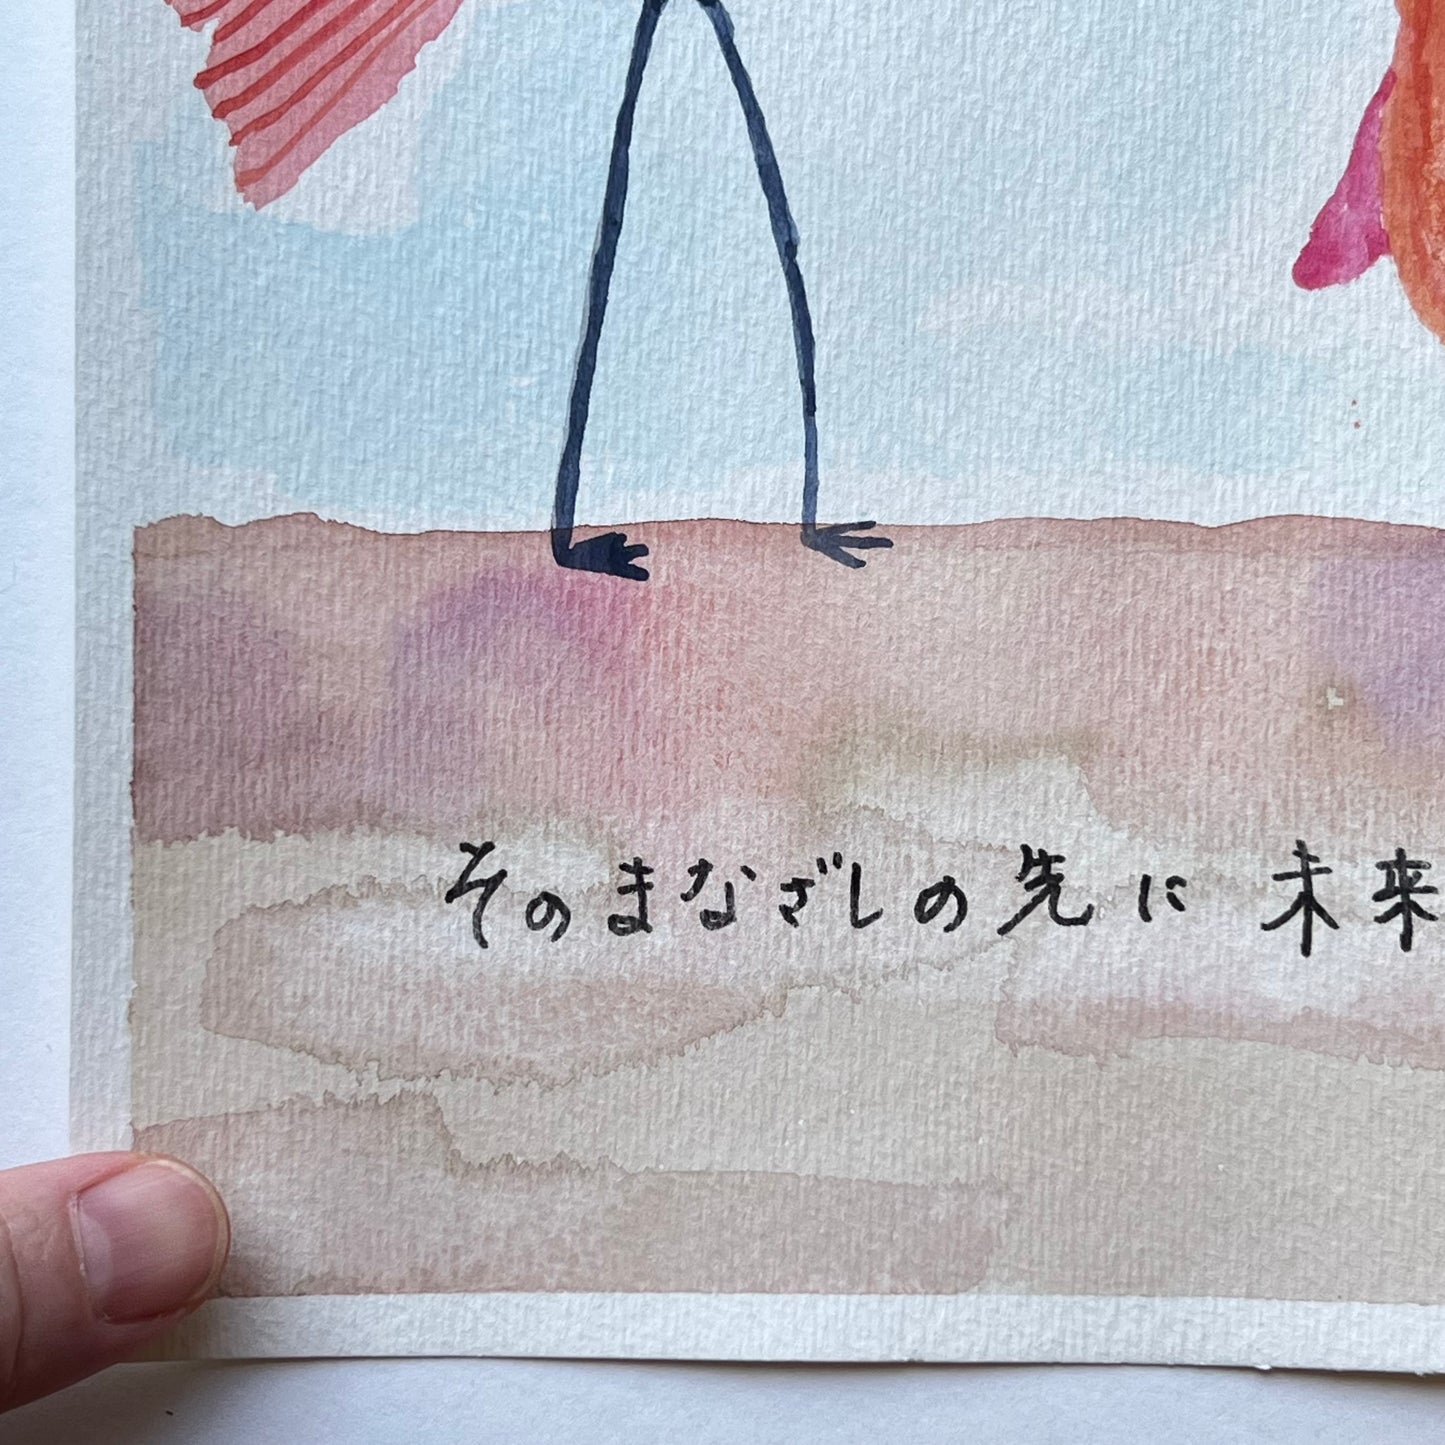 そのまなざしの先に 未来